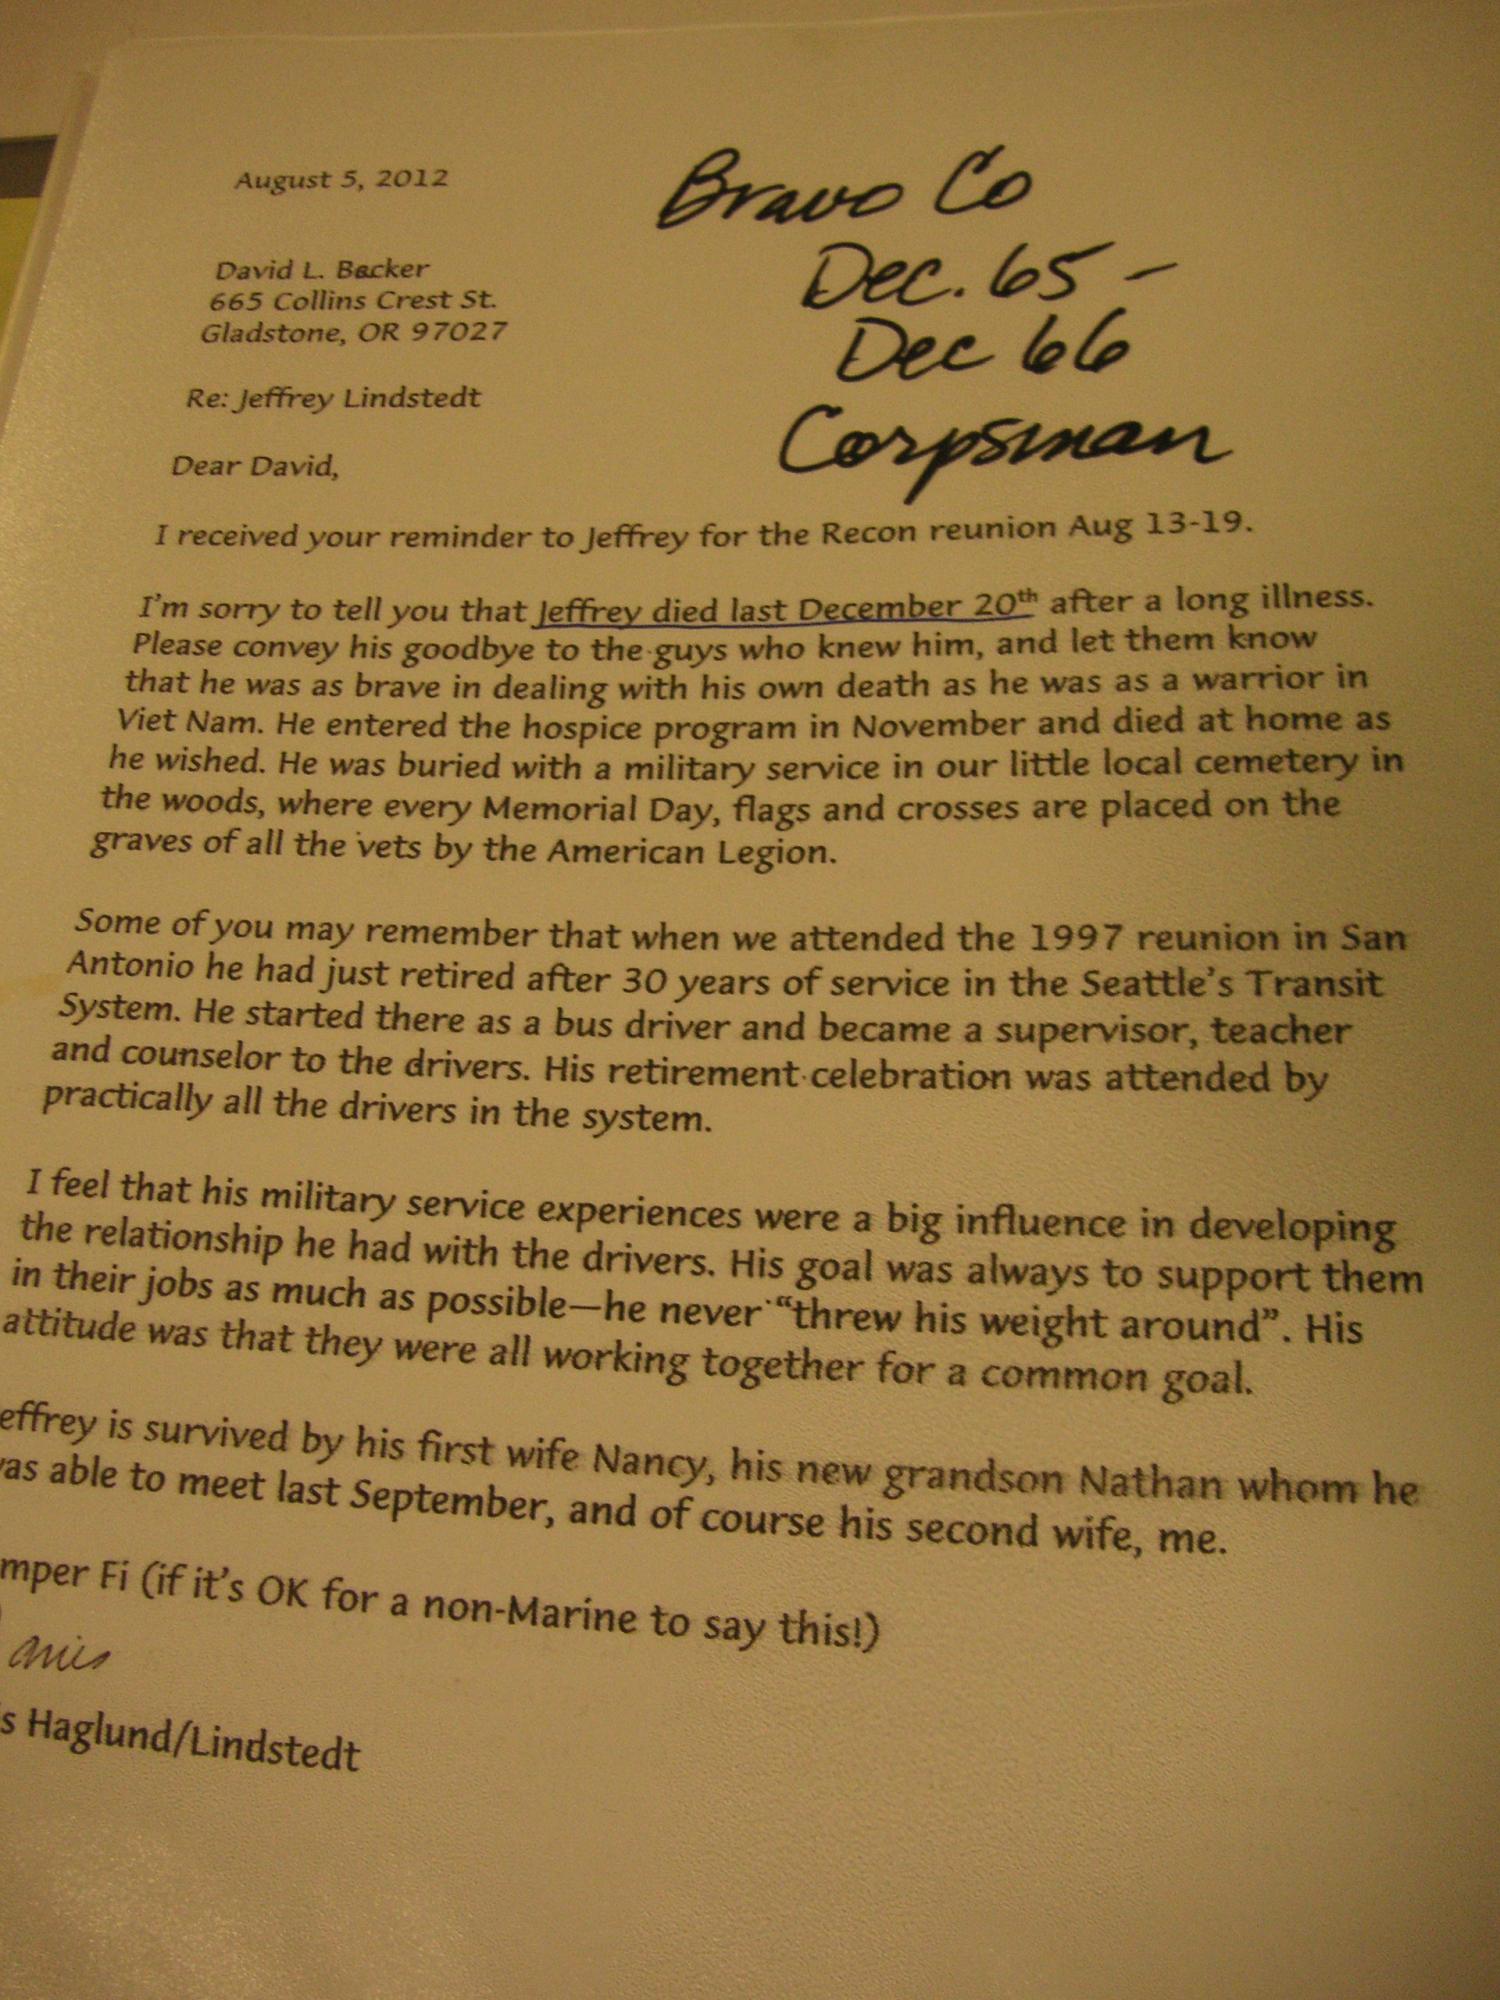 August 5, 2012
Bravo Co
Dec. 65 -
Dec 66
Corpsman
David L. Backer
665 Collins Crest St.
Gladstone, OR 97027
Re: Jeffrey Lindstedt
Dear David,
I received your reminder to Jeffrey for the Recon reunion Aug 13-19.
I'm sorry to tell you that Jeffrey died last December 20th after a long illness.
Please convey his goodbye to the guys who knew him, and let them know
that he was as brave in dealing with his own death as he was as a warrior in
Viet Nam. He entered the hospice program in November and died at home as
he wished. He was buried with a military service in our little local cemetery in
the woods, where every Memorial Day, flags and crosses are placed on the
graves of all the vets by the American Legion.
Some of you may remember that when we attended the 1997 reunion in San
Antonio he had just retired after 30 years of service in the Seattle's Transit
System. He started there as a bus driver and became a supervisor, teacher
and counselor to the drivers. His retirement celebration was attended by
practically all the drivers in the system.
I feel that his military service experiences were a big influence in developing
the relationship he had with the drivers. His goal was always to support them
in their jobs as much as possible—he never “threw his weight around”. His
attitude was that they were all working together for a common goal.
effrey is survived by his first wife Nancy, his new grandson Nathan whom he
as able to meet last September, and of course his second wife, me.
mper Fi (if it's OK for a non-Marine to say this!)
s Haglund/Lindstedt